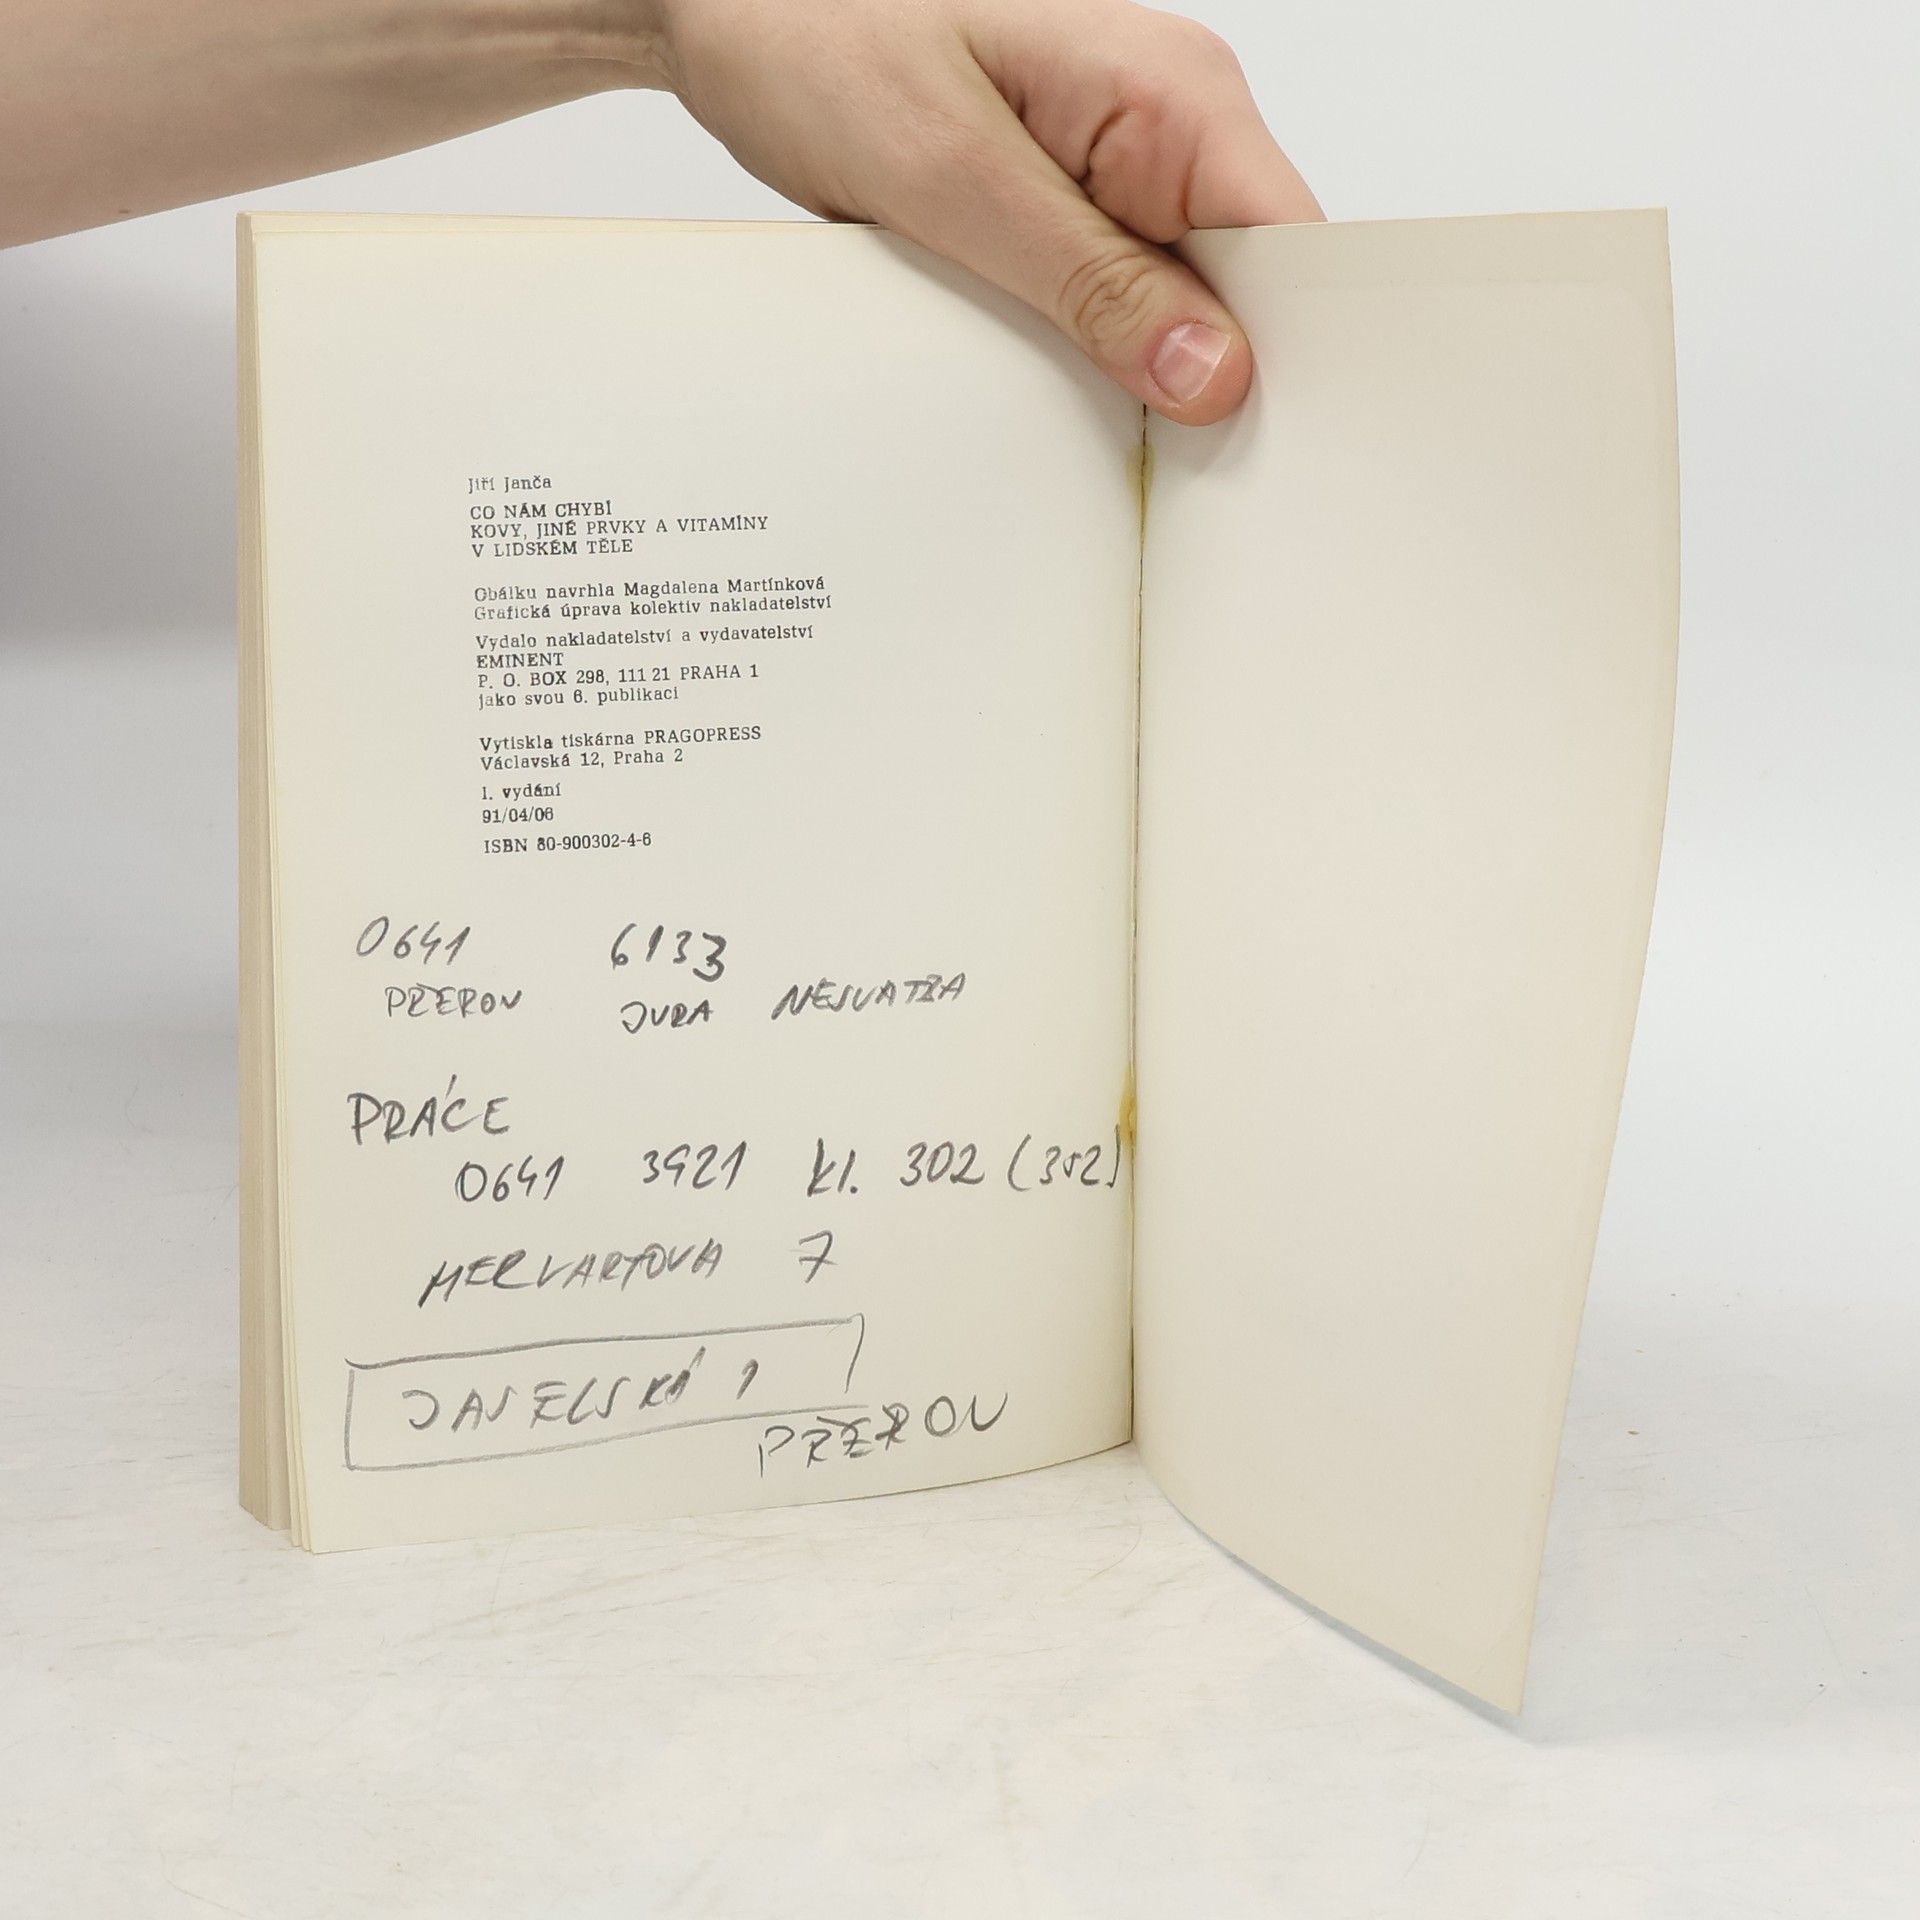 Jiří Janča
CO NÁM CHYBÍ
KOVY, JINÉ PRVKY A VITAMÍNY
V LIDSKÉM TĚLE
Obálku navrhla Magdalena Martínková
Grafická úprava kolektiv nakladatelství
Vydalo nakladatelství a vydavatelství
EMINENT
P. O. BOX 298, 111 21 PRAHA 1
jako svou 6. publikaci
Vytiskla tiskárna PRAGOPRESS
Václavská 12, Praha 2
I. vydání
91/04/06
ISBN 80-900302-4-6
0641 6133
PŘEROV JURA NESVATBA
PRÁCE
0641 3921 kl. 302 (352)
MERVARTOVA 7
JASELSKÁ 1
PŘEROV